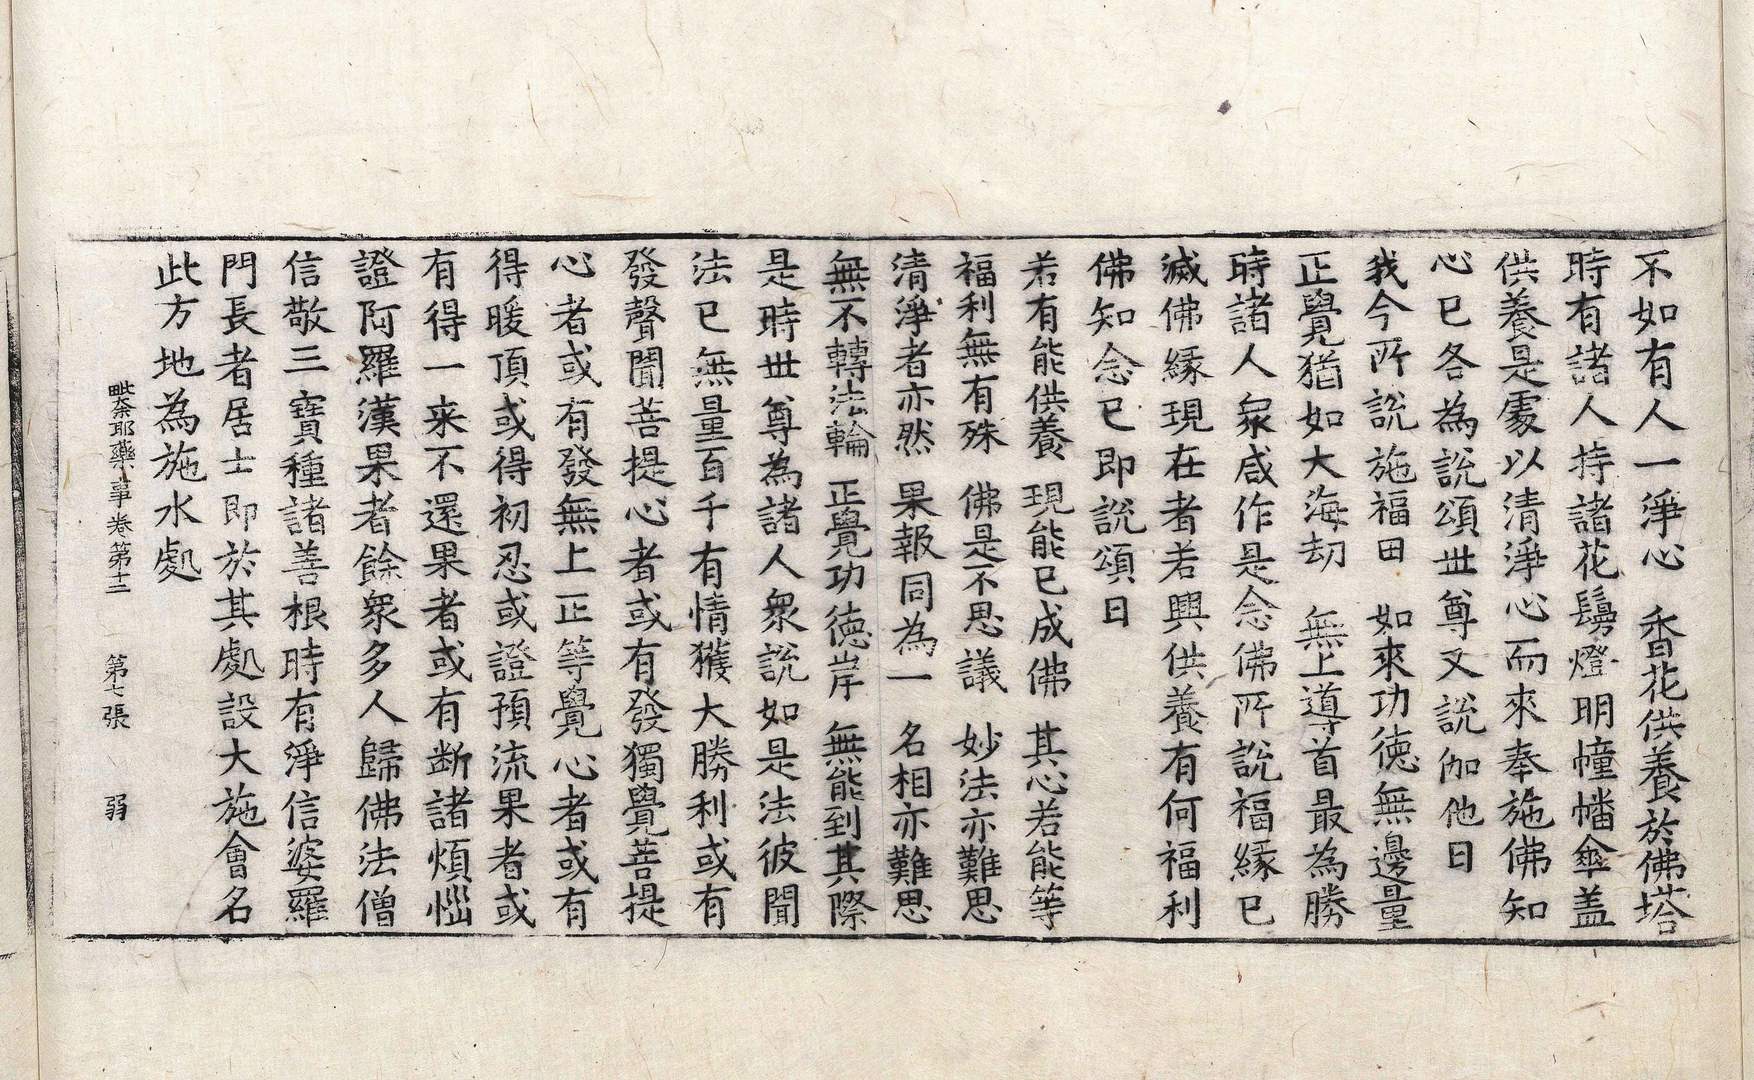 不如有人一淨心　香花供養於佛塔
時有諸人持諸花鬘燈明幢幡傘盖
供養是處以清淨心而來奉施佛知
心已各為說頌世尊又說伽他曰
我今所說施福田　如來功德無邊量
正覺猶如大海劫　無上導首最為勝
時諸人衆咸作是念佛所說福緣已
滅佛緣現在者若興供養有何福利
佛知念已即說頌曰
若有能供養　現能已成佛　其心若能等
福利無有殊　佛是不思議　妙法亦難思
清淨者亦然　果報同為一　名相亦難思
無不轉法輪　正覺功德岸　無能到其際
是時世尊為諸人衆說如是法彼聞
法已無量百千有情獲大勝利或有
發聲聞菩提心者或有發獨覺菩提
心者或有發無上正等覺心者或有
得暖頂或得初忍或證預流果者或
有得一来不還果者或有断諸煩惱
證阿羅漢果者餘衆多人歸佛法僧
信敬三寶種諸善根時有淨信婆羅
門長者居士即於其處設大施會名
此方地為施水處
毗奈耶藥事卷第十二　第七張　弱